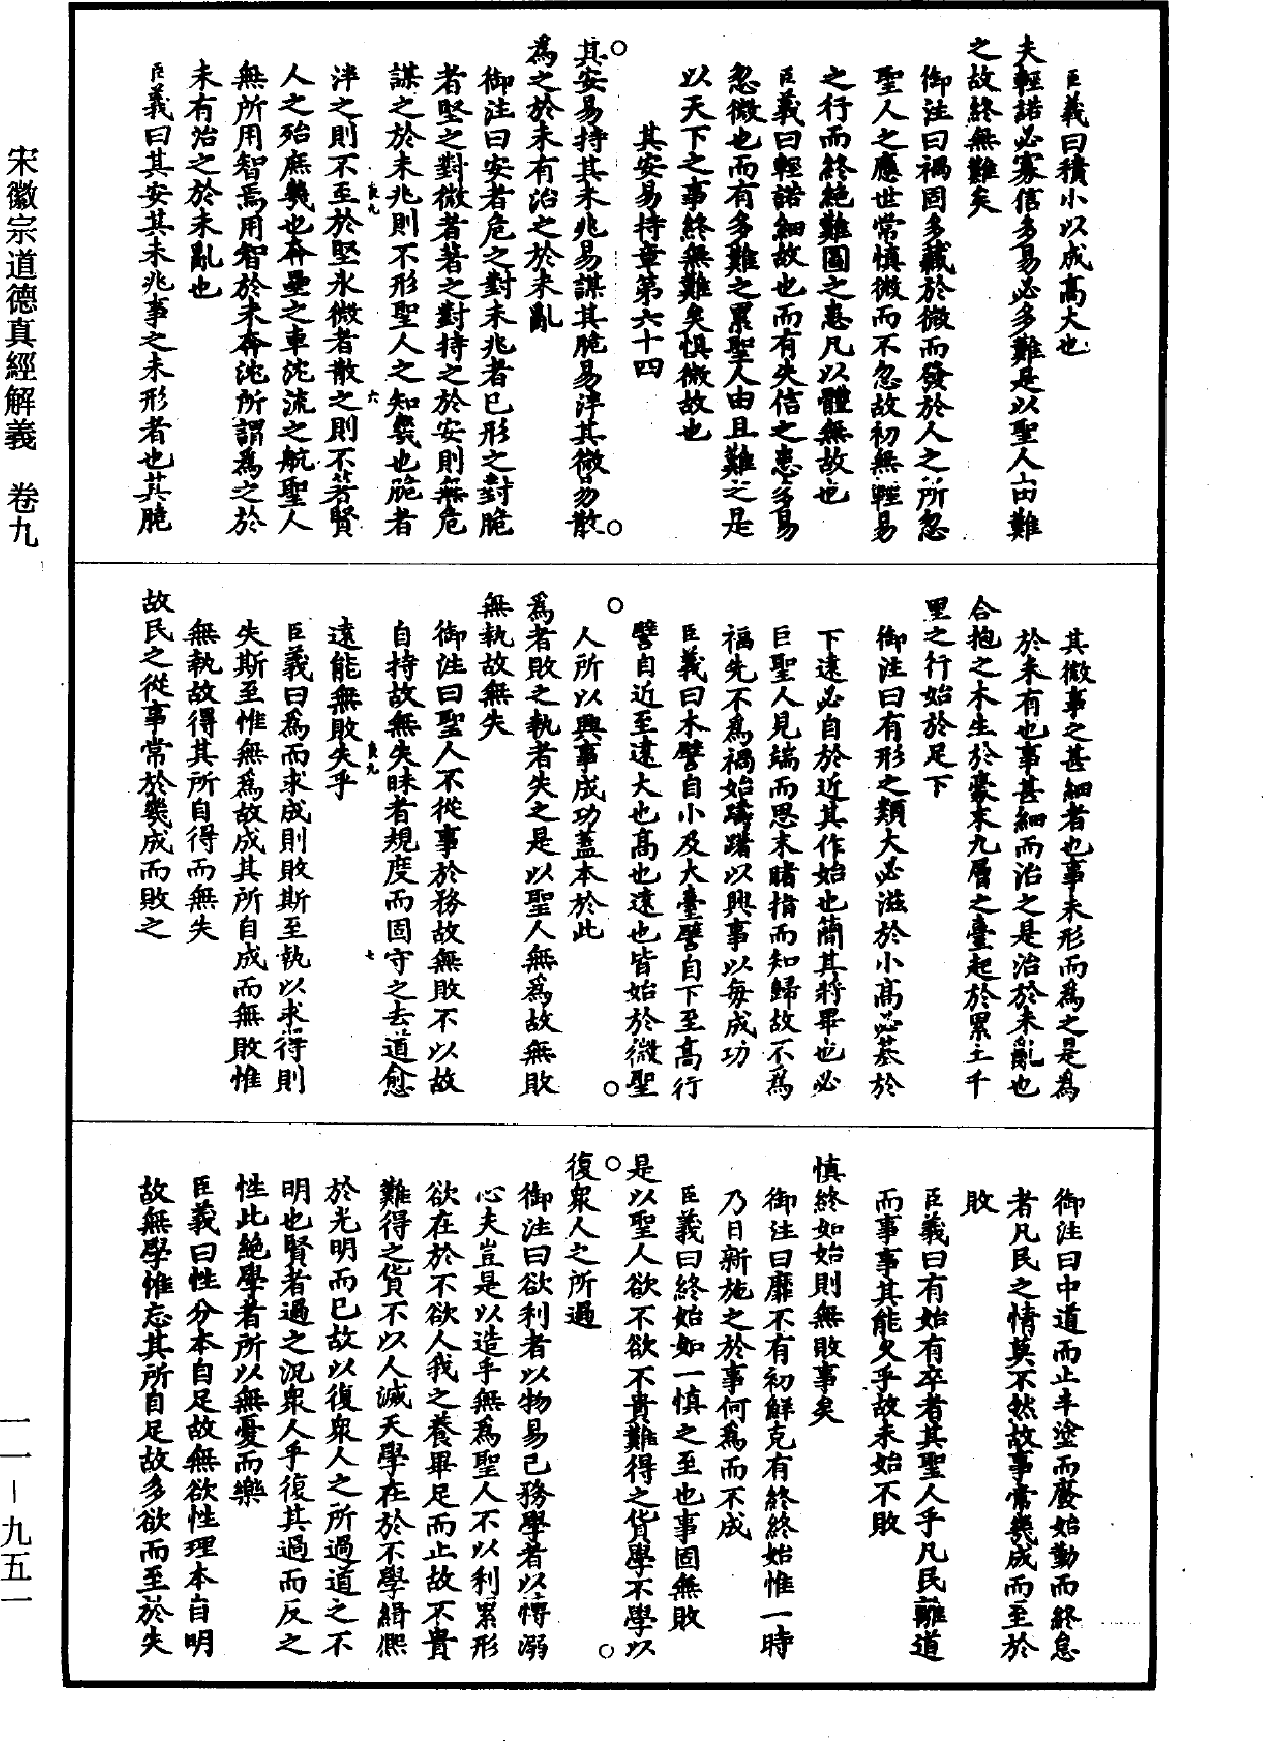 臣義曰積小以成高大也
夫輕諾必寡信多易必多難是以聖人由難
之故終無難矣
御注曰禍固多藏於微而發於人之所忽
聖人之應世常慎微而不忽故初無輕易
之行而終絕難圖之患凡以體無故也
臣義曰輕諾細故也而有失信之患多易
忽微也而有多難之累聖人由且難之是
以天下之事終無難矣惧微故也
其安易持章第六十四
其安易持其未兆易謀其脆易泮其微易散
為之於未有治之於未亂
御注曰安者危之對未兆者已形之對脆
者堅之對微者著之對持之於安則無危
謀之於未兆則不形聖人之知幾也脆者
泮之則不至於堅氷微者散之則不著賢
人之殆庶幾也奔壘之車沈流之航聖人
無所用智焉用智於未奔沈所謂為之於
未有治之於未亂也
臣義曰其安其未兆事之未形者也其脆
良九
六
其微事之甚細者也事未形而為之是為
於未有也事甚細而治之是治於未亂也
合抱之木生於毫末九層之臺起於累土千
里之行始於足下
御注曰有形之類大必滋於小高必基於
下遠必自於近其作始也簡其將畢也必
巨聖人見端而思末睹指而知歸故不為
福先不為禍始躊躇以興事以每成功
臣義曰木譬自小及大臺譬自下至高行
譬自近至遠大也高也遠也皆始於微聖
人所以興事成功蓋本於此
為者敗之執者失之是以聖人無為故無敗
無執故無失
御注曰聖人不從事於務故無敗不以故
自持故無失昧者規度而固守之去道愈
遠能無敗失乎
臣義曰為而求成則敗斯至執以求得則
失斯至惟無為故成其所自成而無敗惟
無執故得其所自得而無失
故民之從事常於幾成而敗之
良九
七
御注曰中道而止半塗而廢始勤而終怠
者凡民之情莫不然故事常幾成而至於
敗
臣義曰有始有卒者其聖人乎凡民離道
而事事其能久乎故未始不敗
慎終如始則無敗事矣
御注曰靡不有初鮮克有終終始惟一時
乃日新施之於事何為而不成
臣義曰終始如一慎之至也事固無敗
是以聖人欲不欲不貴難得之貨學不學以
復眾人之所過
御注曰欲利者以物易己務學者以博溺
心夫豈是以造乎無為聖人不以利累形
欲在於不欲人我之養畢足而止故不貴
難得之貨不以人滅天學在於不學緝熙
於光明而已故以復眾人之所過道之不
明也賢者過之況眾人乎復其過而反之
性此絕學者所以無憂而樂
臣義曰性分本自足故無欲性理本自明
故無學惟忘其所自足故多欲而至於失
宋徽宗道德真經解義　卷九
一一－九五一